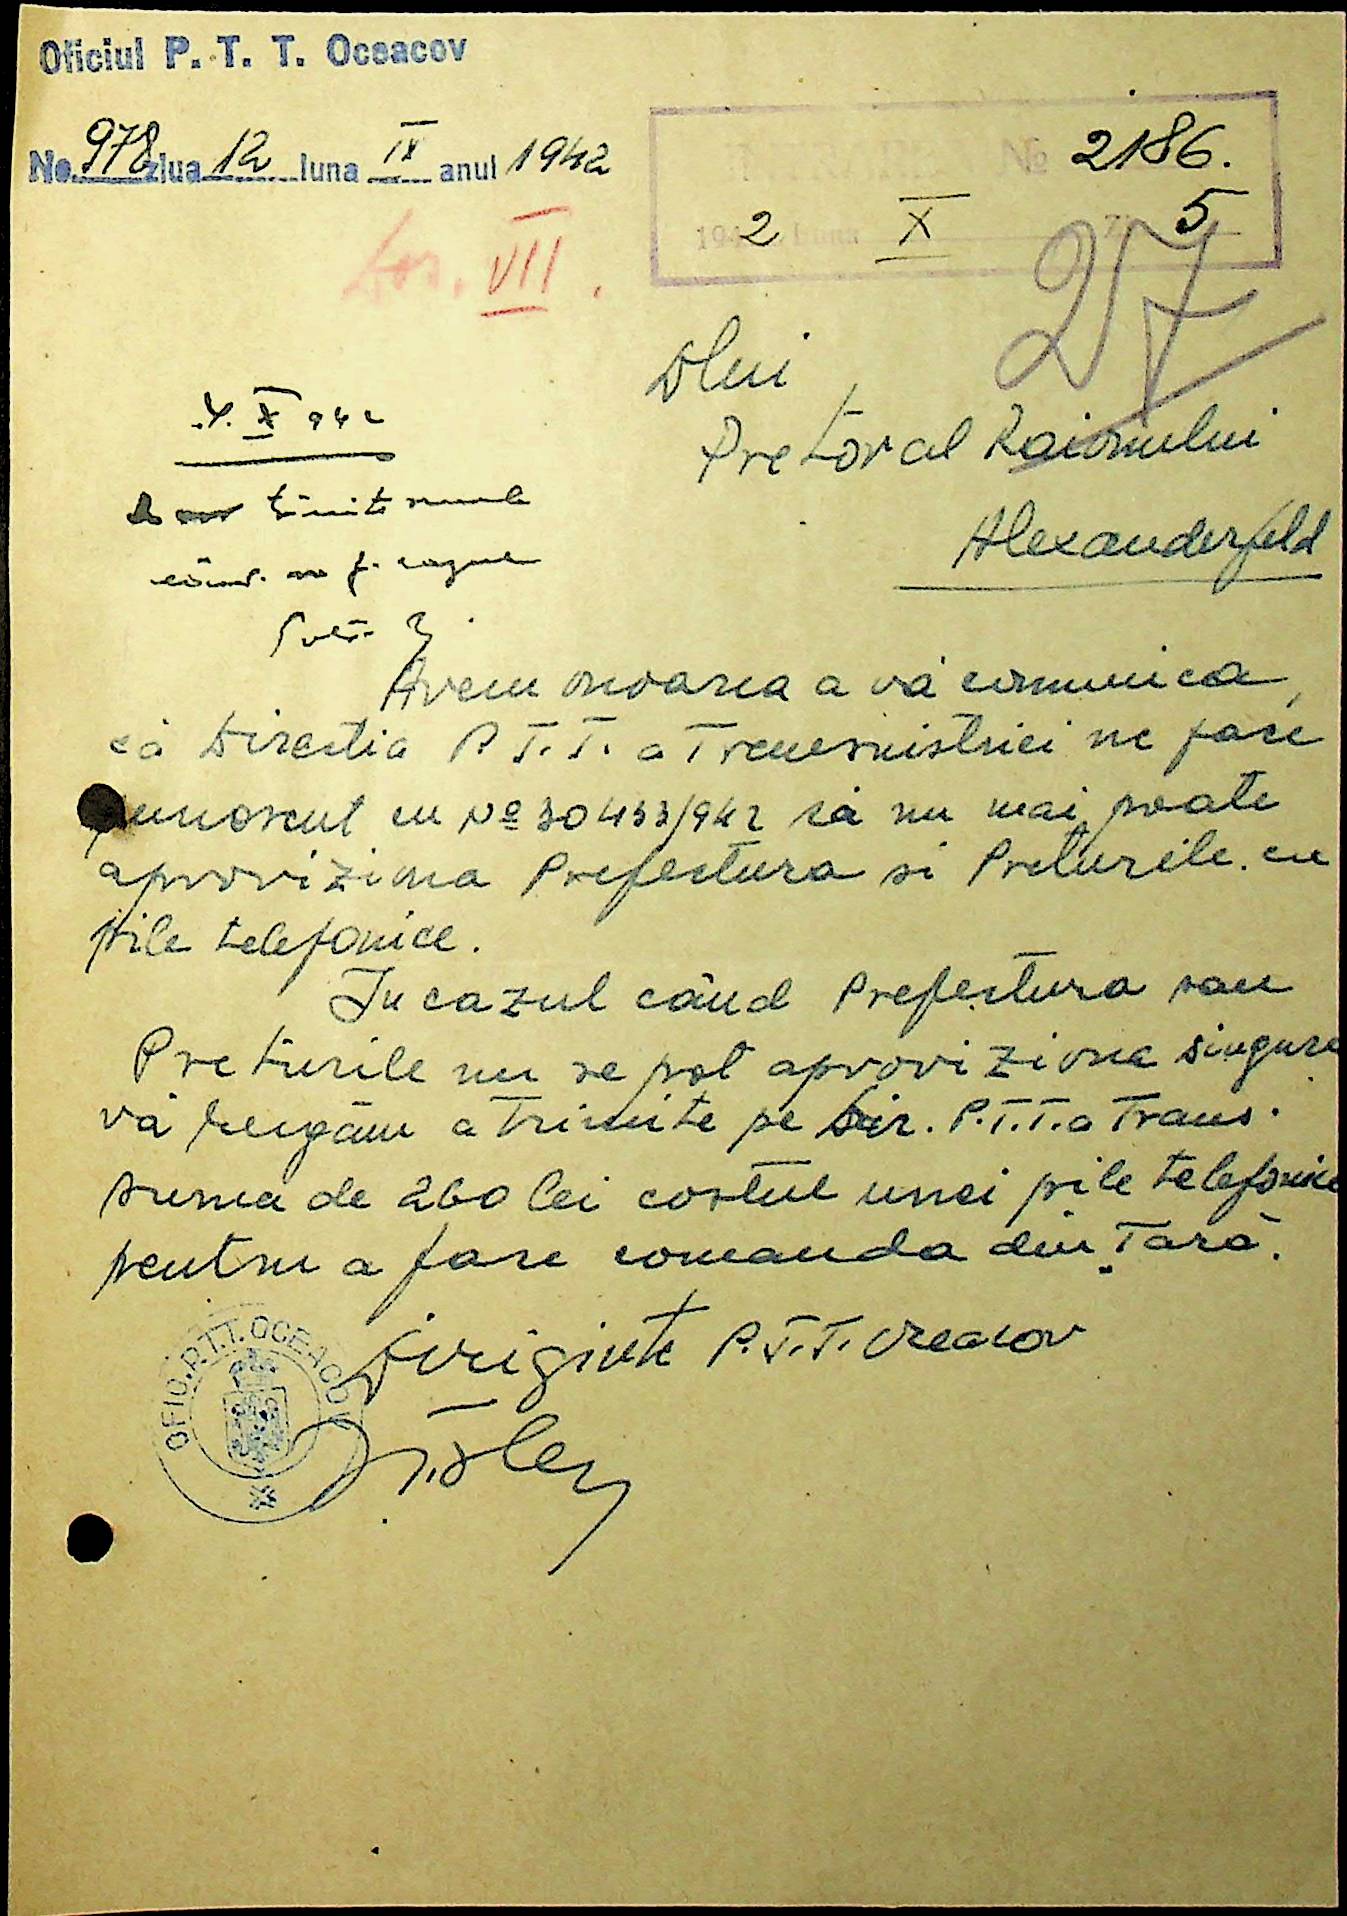 Oficiul P. T. T. Oceacov
No. 978 ziua 12 luna IX anul 1942
№ 2186.
1942 Luna X Z 5
27
Dos. VII.
Dlui
Pretor al Raionului
Alexanderfeld
X 942
Avem onoarea a vă comunica,
că Directia P.T.T. a Transnistriei ne face
cunoscut cu No 30433/942 că nu mai poate
aproviziona Prefectura si Preturile cu
pile telefonice.
In cazul când Prefectura sau
Preturile nu se pot aproviziona singure
vă rugăm a trimite pe Dir. P.T.T. a Trans.
suma de 260 lei costul unei pile telefonice
pentru a face comanda din Tară.
Diriginte P.T.T. Oceacov
OFIC. P.T.T. OCEACOV